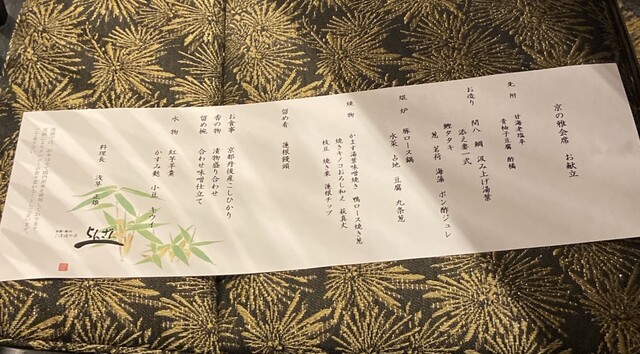 京の雅会席 お献立
先附 甘海老塩辛
青柚子豆腐 酢橘
お造り 間八 鯛 汲み上げ湯葉
添え妻一式
鰹タタキ
葱 茗荷 海藻 ポン酢ジュレ
焜炉 豚ロース鍋
水菜 占地 豆腐 九条葱
焼物 かます湯葉味噌焼き 鴨ロース焼き葱
焼きキノコおろし和え 萩真丈
枝豆 焼き栗 蓮根チップ
留め肴 蓮根饅頭
お食事 京都丹後産こしひかり
香の物 漬物盛り合わせ
留め椀 合わせ味噌仕立て
水物 紅芋羊羹
かすみ麩 小豆
料理長 浅草
らんざん